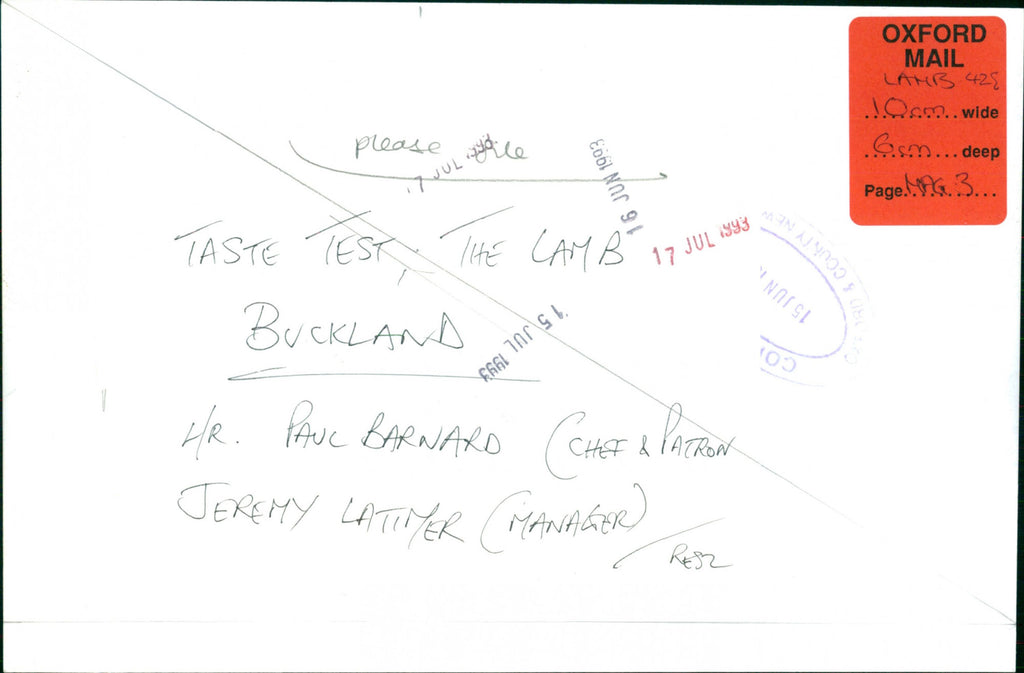 OXFORD
MAIL
LAMB 42%
10cm wide
6cm deep
Page MAG 3
please file
17 JUL 1993
16 JUN 1993
17 JUL 1993
15 JUN
& COUNTY NEW
TASTE TEST; THE LAMB
BUCKLAND
15 JUL 1993
MR. PAUL BARNARD (CHEF & PATRON
JEREMY LATIMER (MANAGER)